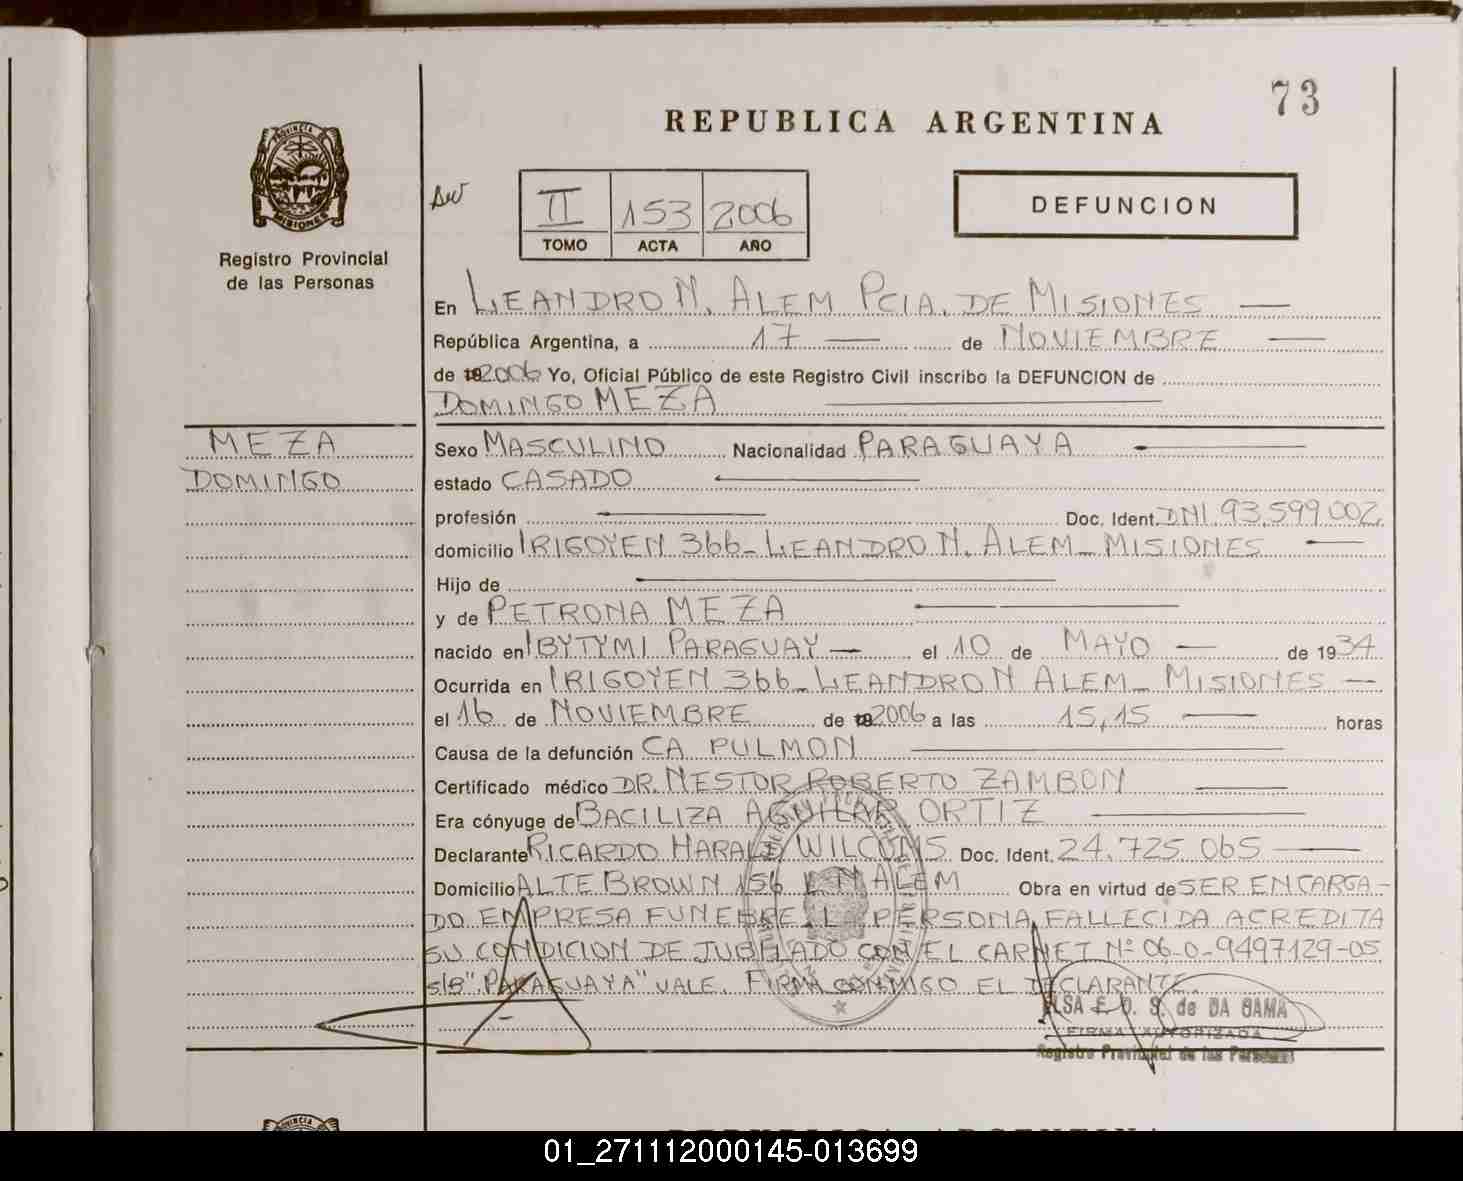 73
REPUBLICA ARGENTINA
II 153 2006
TOMO ACTA AÑO
DEFUNCION
PROVINCIA DE MISIONES
Registro Provincial
de las Personas
En LEANDRO N. ALEM PCIA. DE MISIONES —
República Argentina, a 17 — de NOVIEMBRE —
de 2006 Yo, Oficial Público de este Registro Civil inscribo la DEFUNCION de
DOMINGO MEZA —
MEZA
DOMINGO
Sexo MASCULINO Nacionalidad PARAGUAYA —
estado CASADO —
profesión — Doc. Ident. DNI. 93.599.002
domicilio IRIGOYEN 366_ LEANDRO N. ALEM_ MISIONES —
Hijo de —
y de PETRONA MEZA —
nacido en IBYTYMI PARAGUAY — el 10 de MAYO — de 1934
Ocurrida en IRIGOYEN 366_ LEANDRO N ALEM_ MISIONES —
el 16 de NOVIEMBRE de 2006 a las 15,15 — horas
Causa de la defunción CA PULMON —
Certificado médico DR. NESTOR ROBERTO ZAMBON —
Era cónyuge de BACILIZA AGUILAR ORTIZ —
Declarante RICARDO HARALD WILCOMS Doc. Ident. 24.725.065 —
Domicilio ALTE BROWN 156 L N ALEM Obra en virtud de SER ENCARGA-
DO EMPRESA FUNEBRE. LA PERSONA FALLECIDA ACREDITA
SU CONDICION DE JUBILADO CON EL CARNET Nº 06-0-9497129-05
S/B "PARAGUAYA" VALE. FIRMA CONMIGO EL DECLARANTE.
ELSA E. D. S. de DA GAMA
FIRMA AUTORIZADA
Registro Provincial de las Personas
REPUBLICA ARGENTINA
01_271112000145-013699